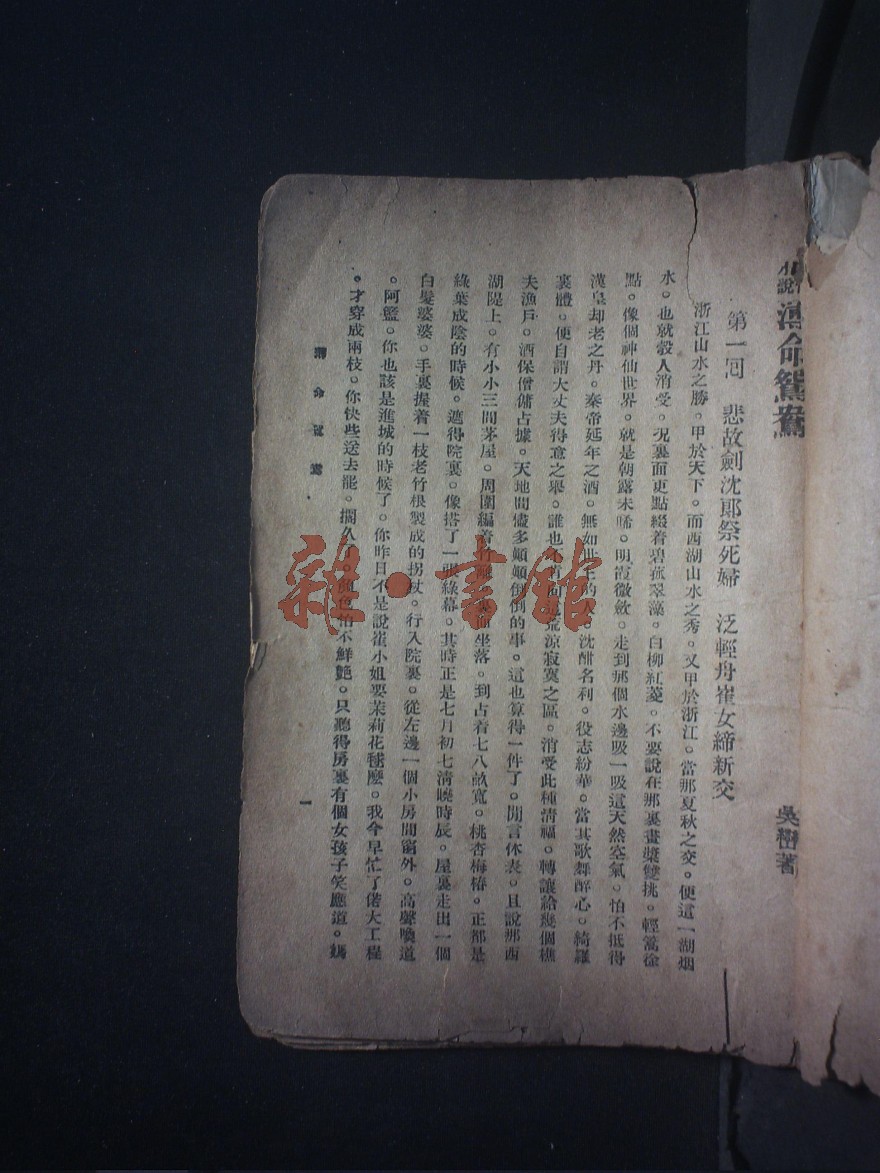 小說 薄命鴛鴦
吳巒著
第一回 悲故劍沈郎祭死婦 泛輕舟崔女締新交
浙江山水之勝。甲於天下。而西湖山水之秀。又甲於浙江。當那夏秋之交。便這一湖烟
水。也就彀人消受。况裏面更點綴着碧菰翠藻。白柳紅菱。不要說在那裏畫槳雙挑。輕篙徐
點。像個神仙世界。就是朝露未晞。明霞微歛。走到那個水邊吸一吸這天然空氣。怕不抵得
漢皇却老之丹。秦帝延年之酒。無如世上的人。沈酣名利。役志紛華。當其歌舞醉心。綺羅
裏體。便自謂大丈夫得意之舉。誰也不肯向這荒涼寂寞之區。消受此種淸福。轉讓給幾個樵
夫漁戶。酒保僧傭占據。天地間儘多顚顚倒倒的事。這也算得一件了。閒言休表。且說那西
湖隄上。有小小三間茅屋。周圍編着竹籬。裏面坐落。到占着七八畝寬。桃杏梅椿。正都是
綠葉成陰的時候。遮得院裏。像搭了一張綠幕。其時正是七月初七淸曉時辰。屋裏走出一個
白髮婆婆。手裏握着一枝老竹根製成的拐杖。行入院裏。從左邊一個小房間窗外。高聲喚道
。阿籃。你也該是進城的時候了。你昨日不是說崔小姐要茉莉花毬麽。我今早忙了偌大工程
。才穿成兩枝。你快些送去罷。擱久了。顏色怕不鮮艶。只聽得房裏有個女孩子笑應道。媽
薄命鴛鴦
一
雜·書館